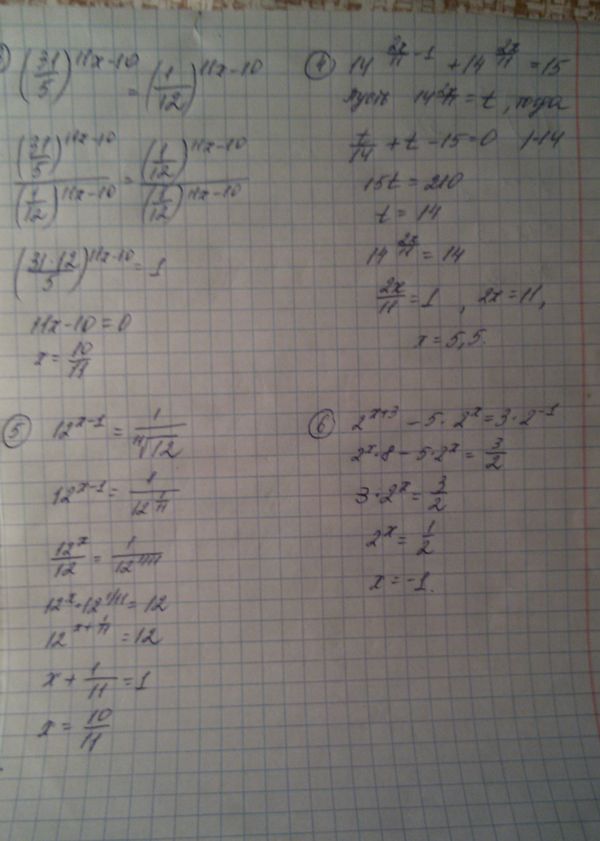 (31/5)^(11x-10) = (1/12)^(11x-10)
(31/5)^(11x-10) / (1/12)^(11x-10) = (1/12)^(11x-10) / (1/12)^(11x-10)
(31·12/5)^(11x-10) = 1
11x-10=0
x = 10/11
④ 14^(2x/11 -1) + 14^(2x/11) = 15
Пусть 14^(2x/11) = t, тогда
t/14 + t - 15 = 0 |·14
15t = 210
t = 14
14^(2x/11) = 14
2x/11 = 1, 2x = 11,
x = 5,5.
⑤ 12^(x-1) = 1/¹¹√12
12^(x-1) = 1/12^(1/11)
12^x/12 = 1/12^(1/11)
12^x·12^(1/11) = 12
12^(x+1/11) = 12
x + 1/11 = 1
x = 10/11
⑥ 2^(x+3) - 5·2^x = 3·2^(-1)
2^x·8 - 5·2^x = 3/2
3·2^x = 3/2
2^x = 1/2
x = -1.